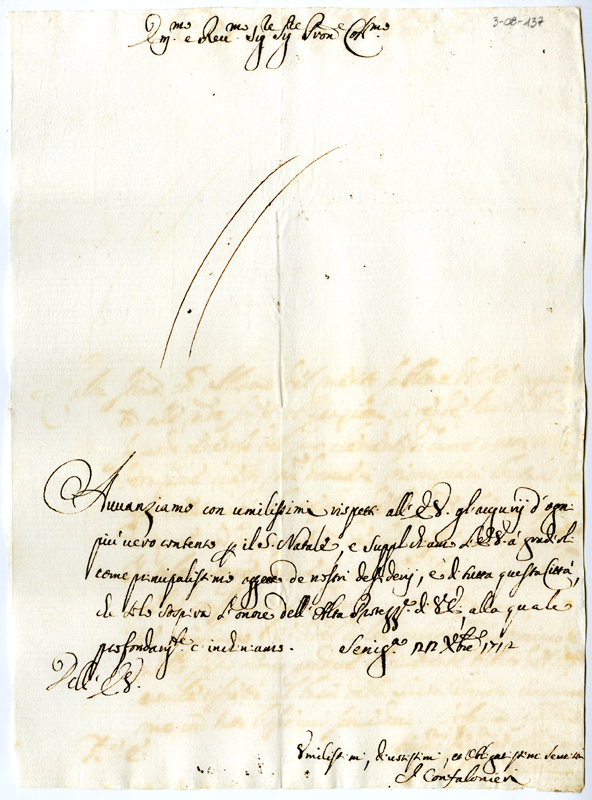 3-08-137
Em.mo e Reu.mo Sig.re Sig.re Pron.e Col.mo
Auuanziamo con umilissimi rispetti all' E.V. gl'augurij d'ogni
più uero contento p il S. Natale, e supplichiamo L'E.V. à gradirli
come principalissimo oggetto de nostri desiderij, e di tutta questa Città,
che solo sospira l'onore dell' Alta Protezz.e di V.E., alla quale
profondam.te c'inchiniamo. Senig.a 12 Xbre 1712
Dell' E.V.
Vmilissimi, diuotissimi, et Oblig.atissimi Seruitori
Il Confaloniere